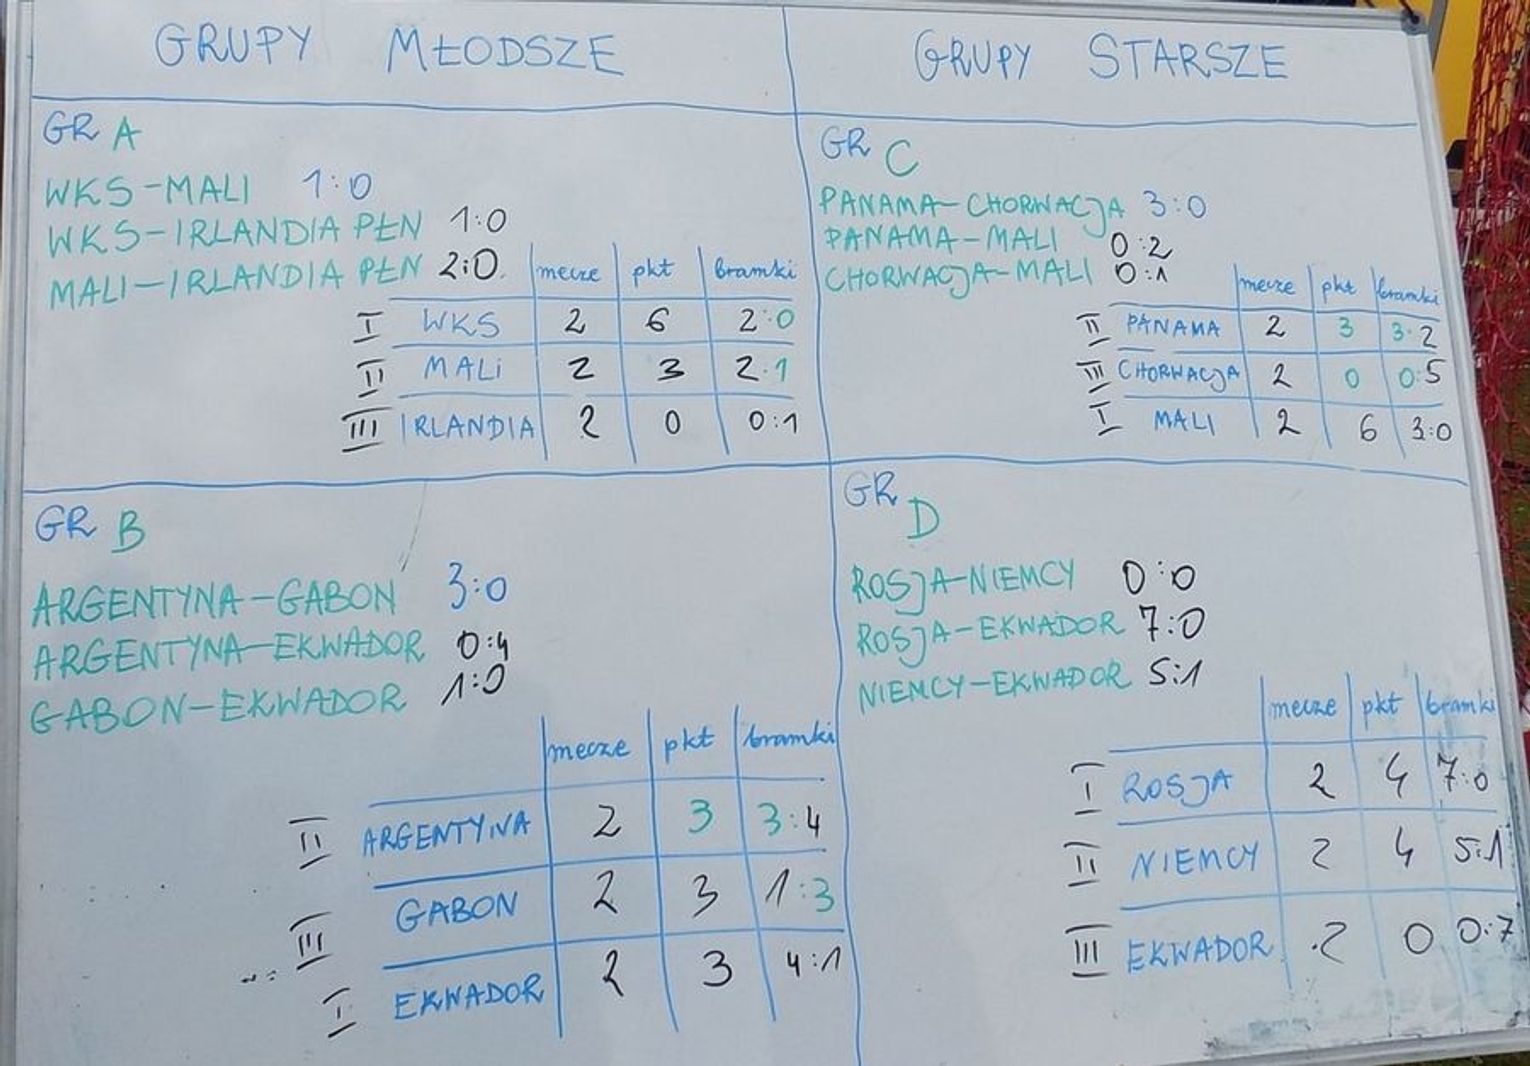 GRUPY MŁODSZE
GRUPY STARSZE
GR A
WKS-MALI 1:0
WKS-IRLANDIA PŁN 1:0
MALI-IRLANDIA PŁN 2:0
mecze pkt bramki
I WKS 2 6 2:0
II MALI 2 3 2:1
III IRLANDIA 2 0 0:1
GR C
PANAMA-CHORWACJA 3:0
PANAMA-MALI 0:2
CHORWACJA-MALI 0:1
mecze pkt bramki
II PANAMA 2 3 3:2
III CHORWACJA 2 0 0:5
I MALI 2 6 3:0
GR B
ARGENTYNA-GABON 3:0
ARGENTYNA-EKWADOR 0:4
GABON-EKWADOR 1:0
mecze pkt bramki
II ARGENTYNA 2 3 3:4
III GABON 2 3 1:3
I EKWADOR 2 3 4:1
GR D
ROSJA-NIEMCY 0:0
ROSJA-EKWADOR 7:0
NIEMCY-EKWADOR 5:1
mecze pkt bramki
I ROSJA 2 4 7:0
II NIEMCY 2 4 5:1
III EKWADOR 2 0 0:7